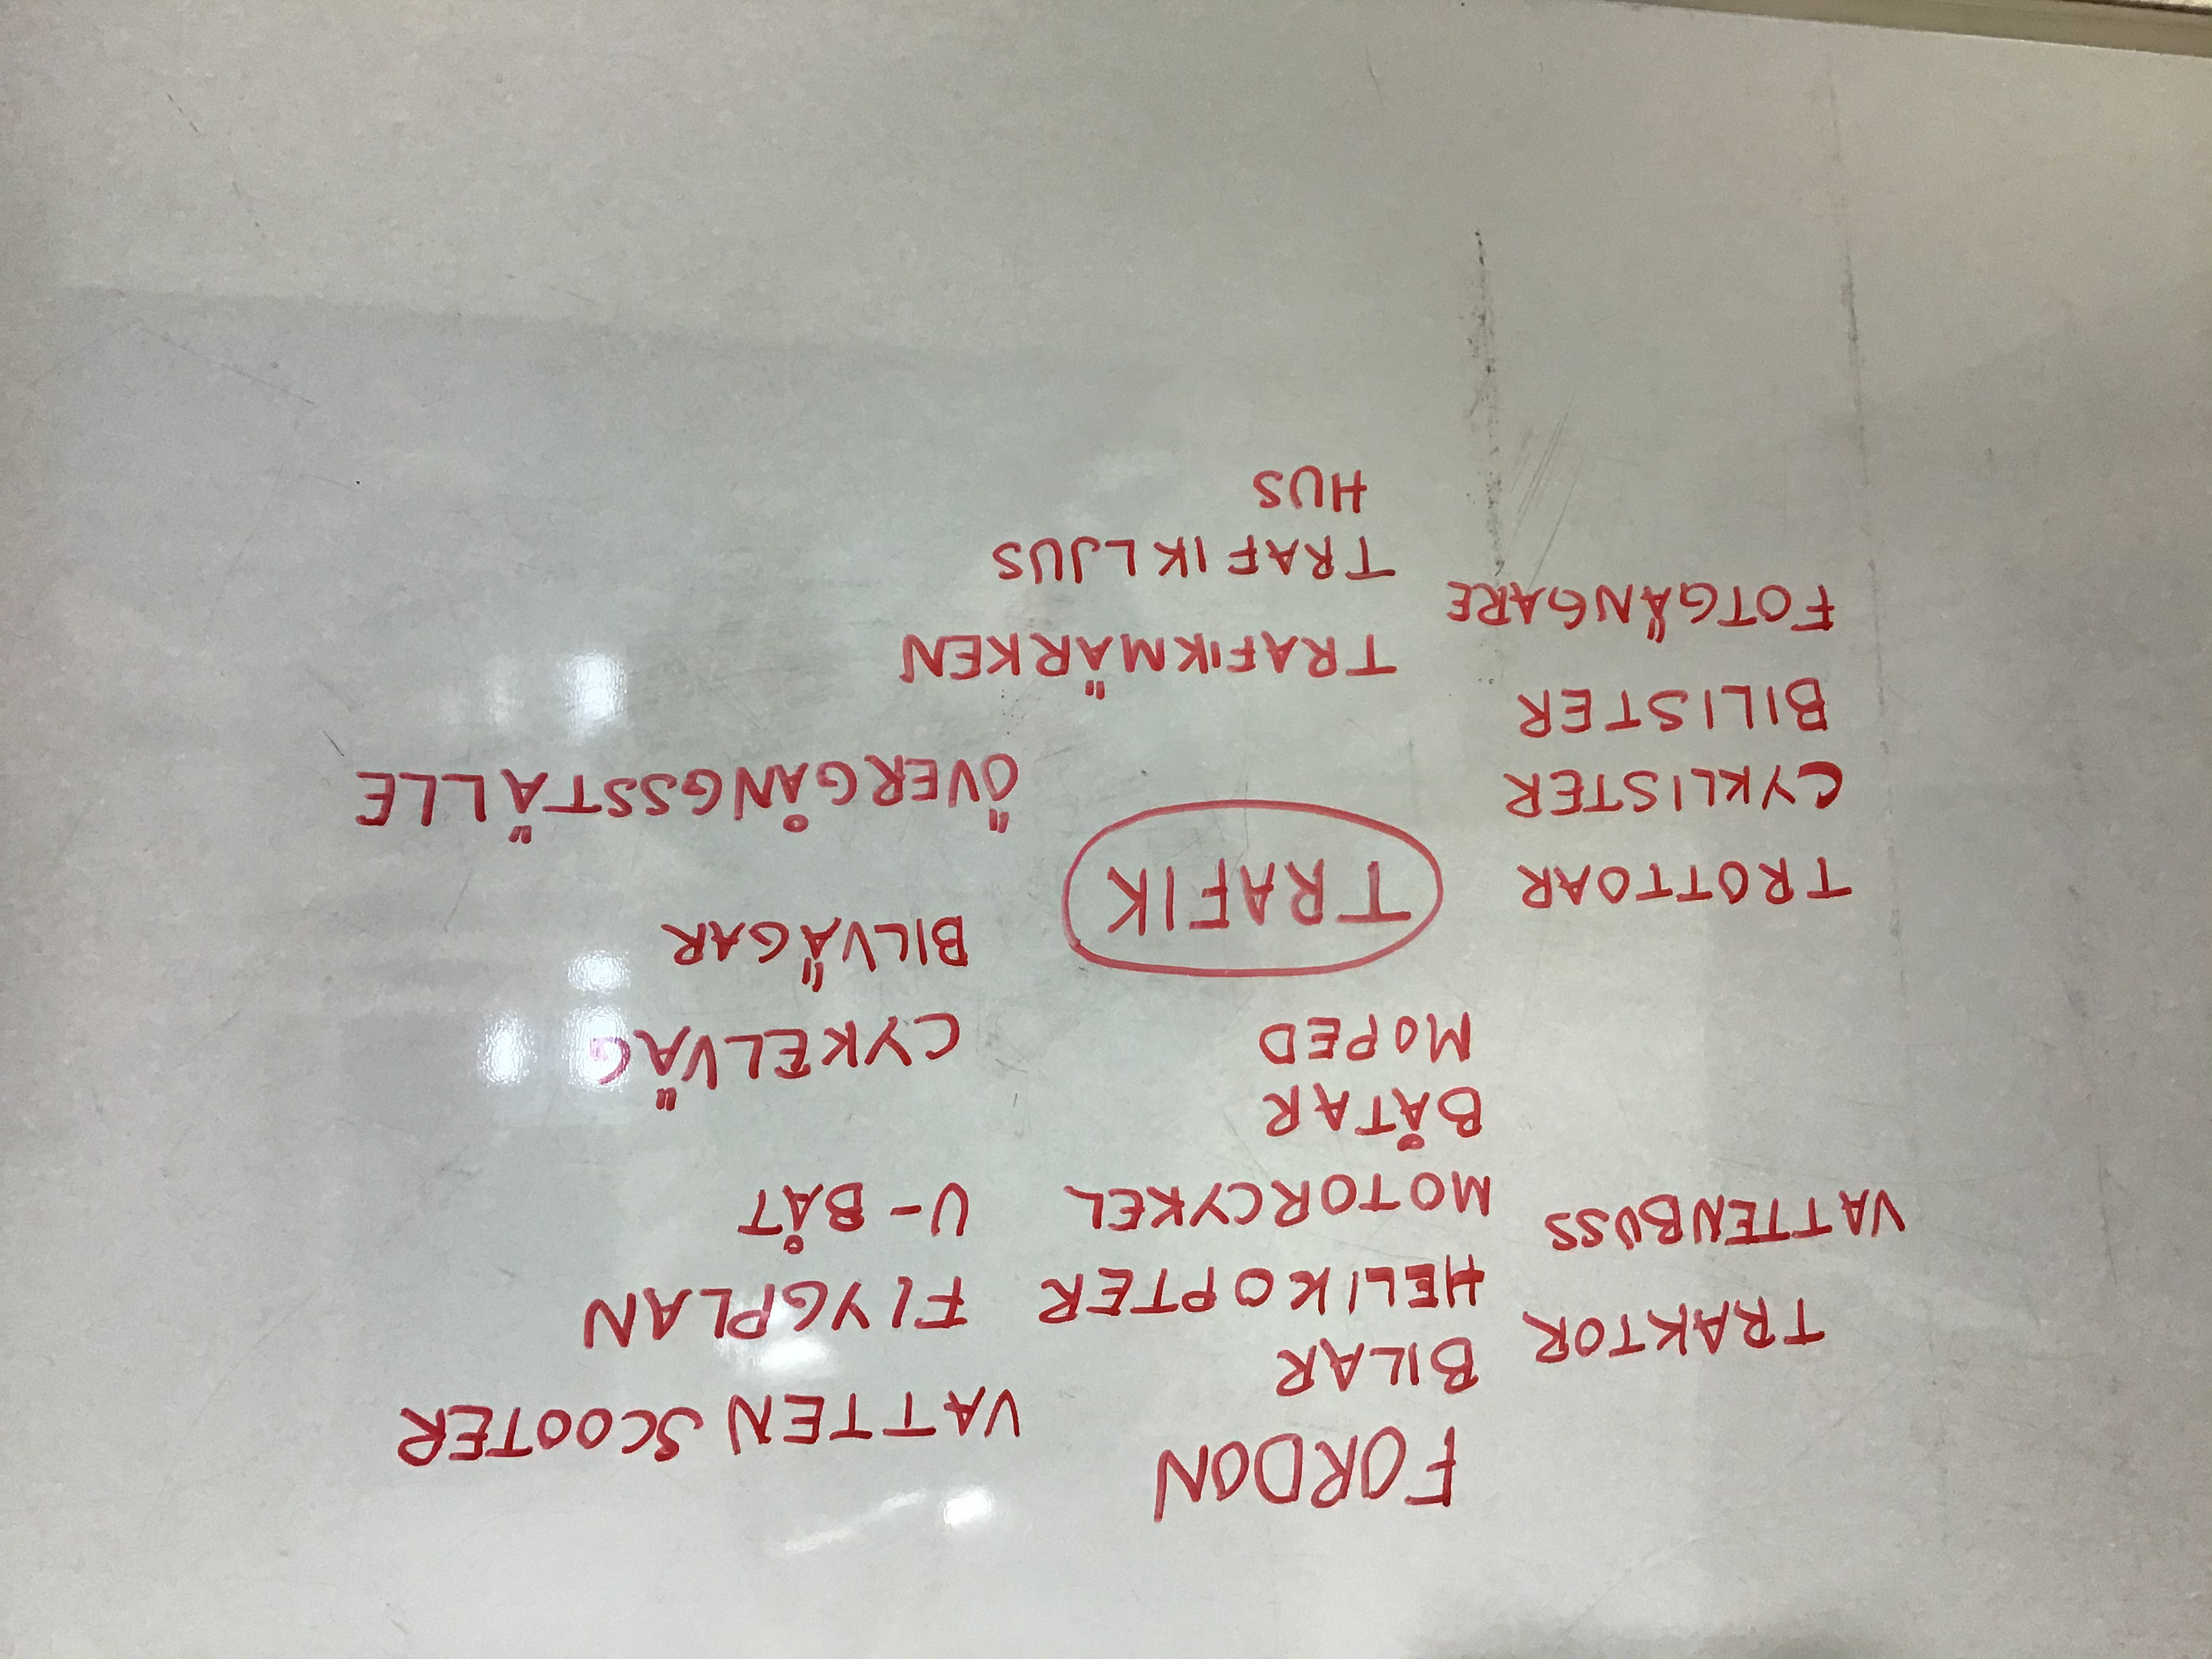 FORDON
VATTEN SCOOTER
TRAKTOR
BILAR
HELIKOPTER
FLYGPLAN
VATTENBUSS
MOTORCYKEL
U-BÅT
BÅTAR
MOPED
CYKELVÄG
TROTTOAR
TRAFIK
BILVÄGAR
CYKLISTER
ÖVERGÅNGSSTÄLLE
BILISTER
TRAFIKMÄRKEN
FOTGÄNGARE
TRAFIKLJUS
HUS